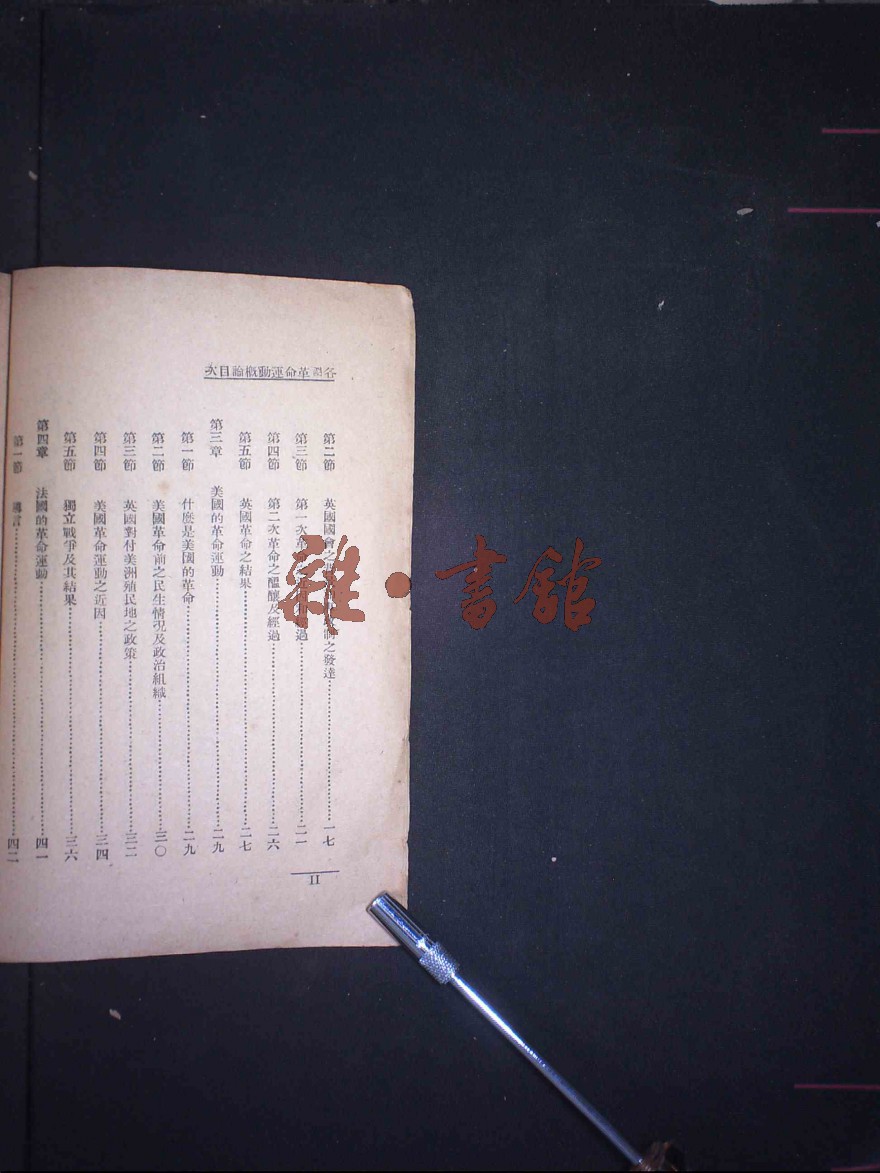 各國革命運動概論目次
第二節 英國國會之 制之發達 一七
第一次革命 過 二一
第三節
第四節 第二次革命之醞釀及經過 二六
第五節 英國革命之結果 二七
第三章 美國的革命運動 二九
第一節 什麽是美國的革命 二九
第二節 美國革命前之民生情況及政治組織 三〇
第三節 英國對付美洲殖民地之政策 三二
第四節 美國革命運動之近因 三四
第五節 獨立戰爭及其結果 三六
第四章 法國的革命運動 四一
第一節 導言 四二
II
雜·書館